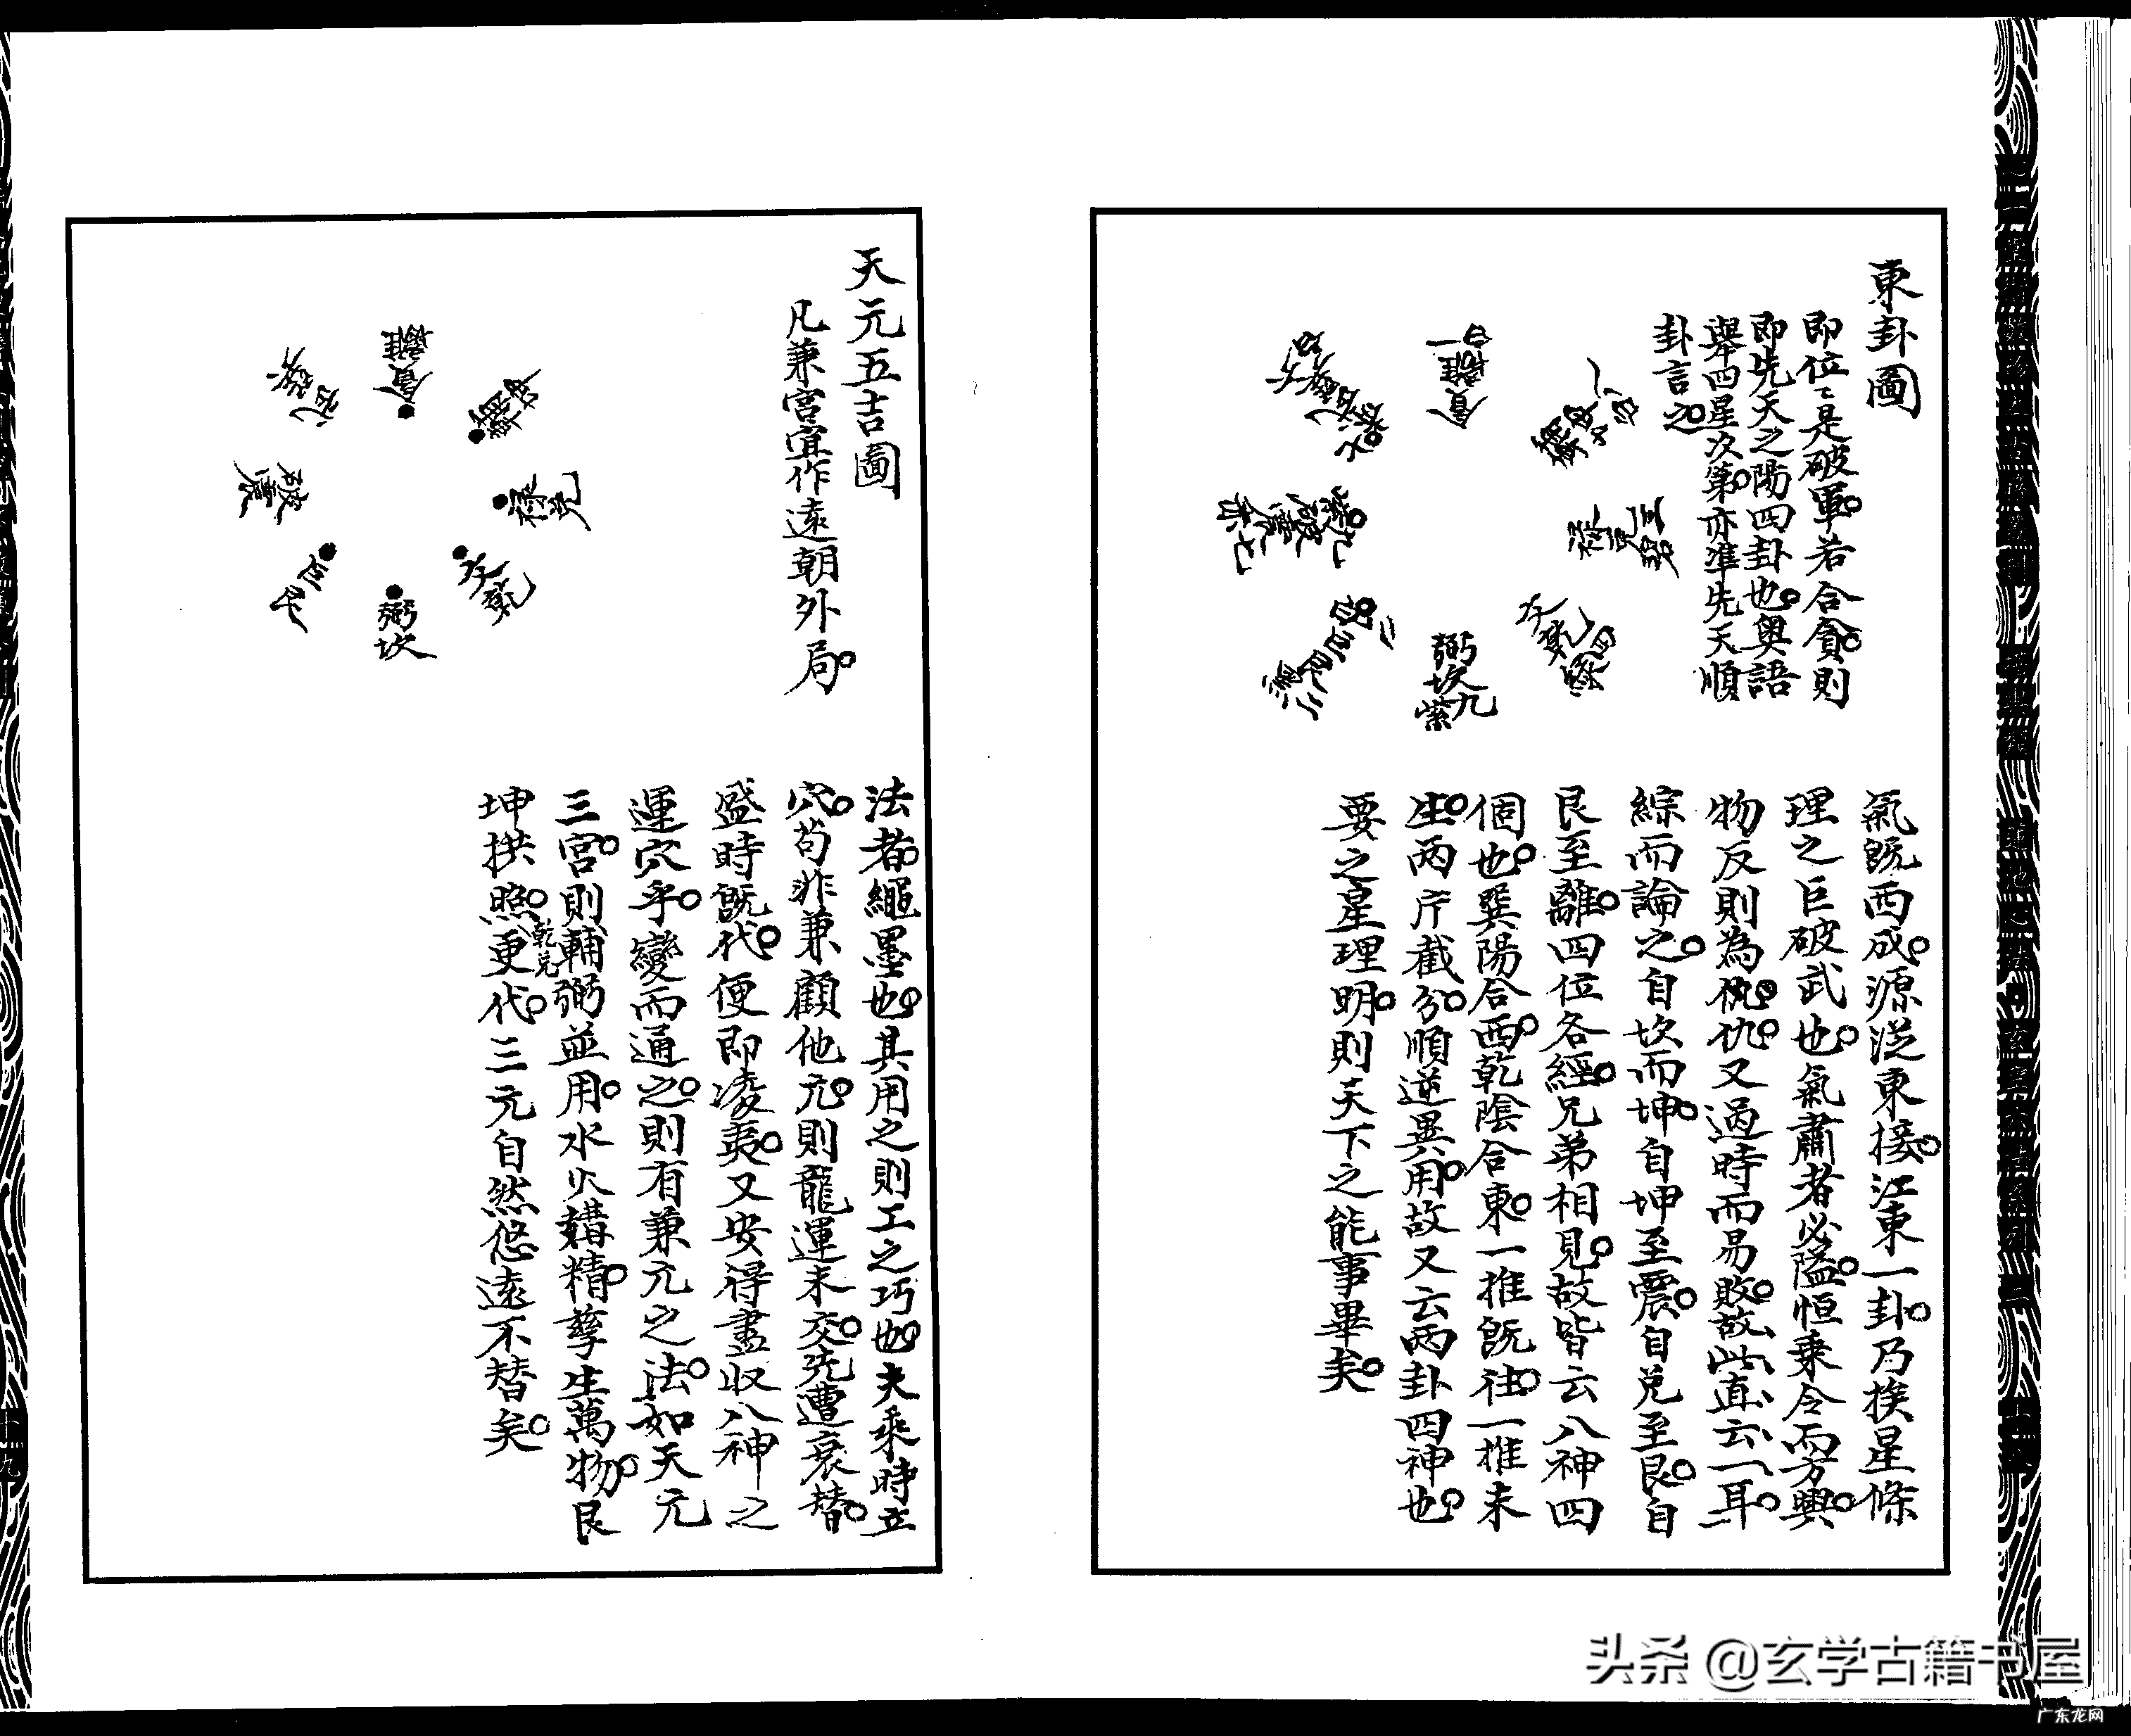 東卦圖
即位位是破軍若合貪則
即先天之陽四卦也奧語
舉四星次第亦準先天順
卦言之
離
貪
祿
兌
三
碧
左
乾
四
綠
弼
坎
九
紫
氣既西成源從東接江東一卦乃挨星條
理之巨破武也氣肅者必隘恒乗令而方興
物反則為仇仇又過時而易敗故此直云一耳
綜而論之自坎而坤自坤至震自兌至艮自
艮至離四位各經兄弟相見故皆云八神四
個也巽陽合西乾陰合東一推既往一推未
生两片截分順逆異用故又云两卦四神也
要之星理明則天下之能事畢矣
天元五吉圖
凡兼宮宜作遠朝外局
離
貪
祿
兌
左
乾
弼
坎
巨
艮
破
震
武
巽
法者繩墨也其用之則工之巧也夫乘時立
穴苟非兼顧他元則龍運未交先遭衰替
盛時既代便即凌夷又安得盡收八神之
運穴乎變而通之則有兼元之法如天元
三宮則輔弼並用水火媾精孳生萬物艮
坤拱照乾兌更代三元自然悠遠不替矣
十九
头条 @玄学古籍书屋
广东龙网